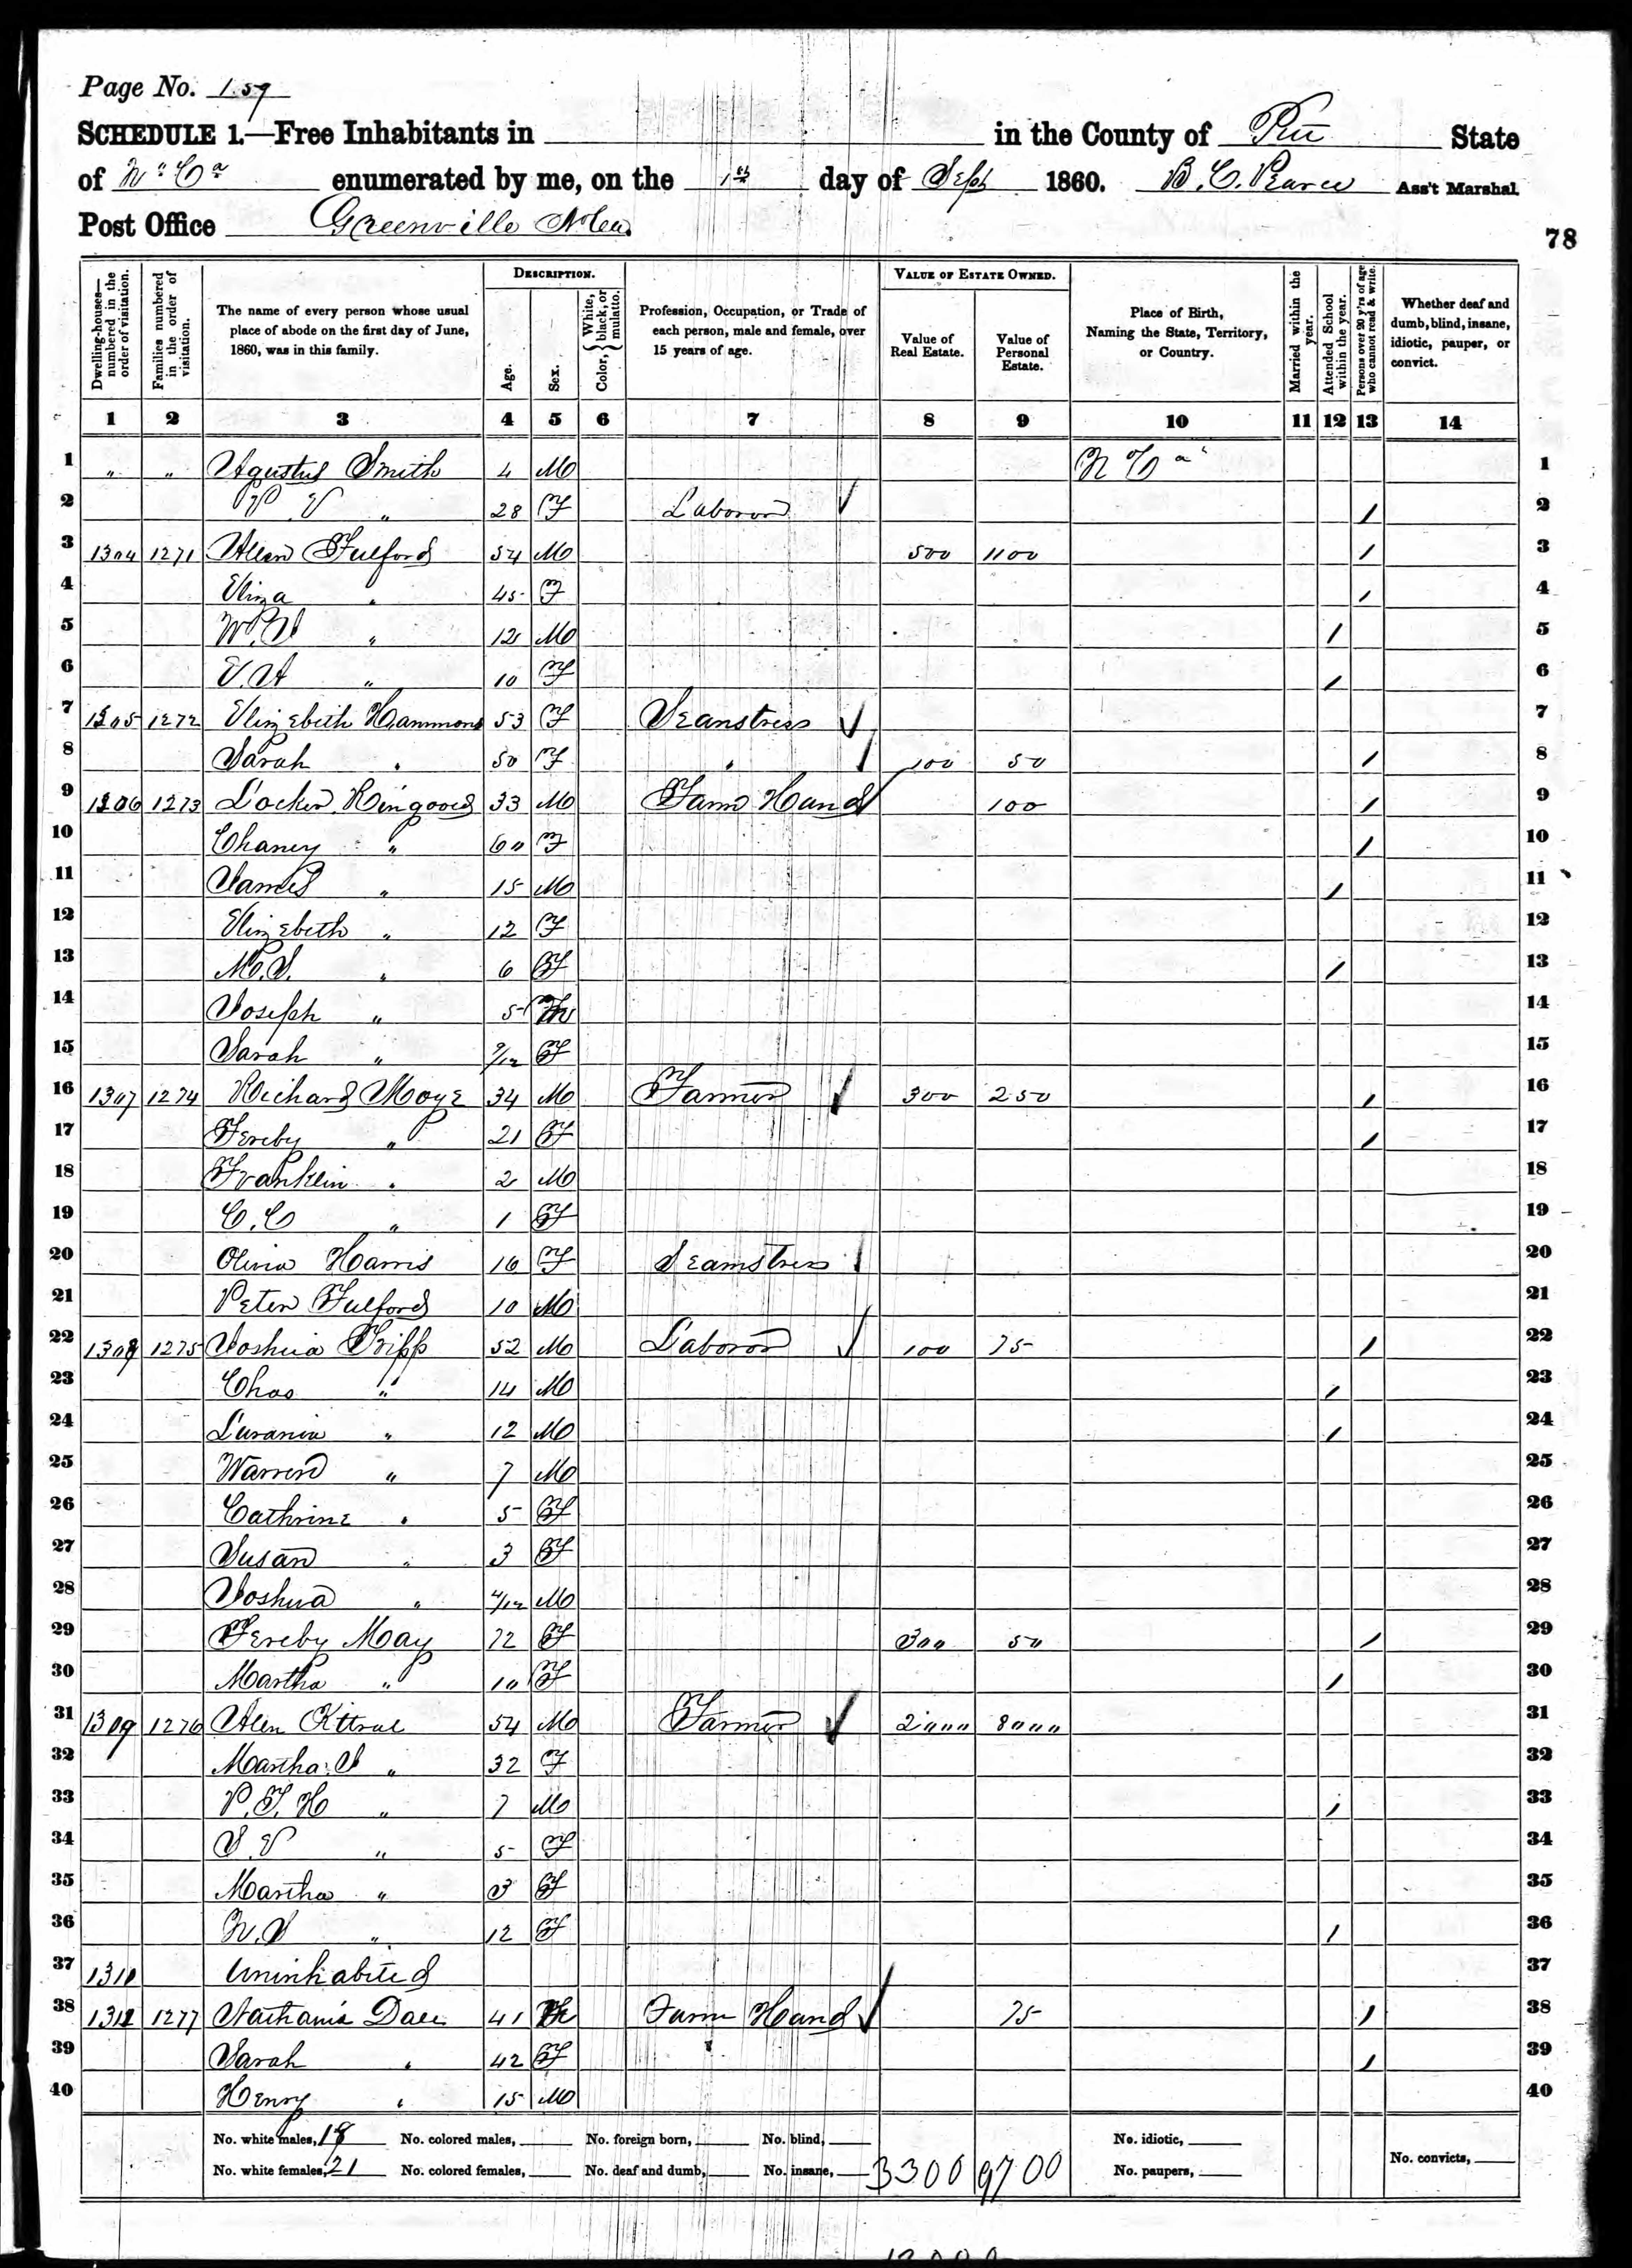 Page No. 159
SCHEDULE 1.—Free Inhabitants in in the County of Pitt State
of No Ca enumerated by me, on the 1st day of Sept 1860. B. C. Pearce Ass't Marshal
Post Office Greenville No Ca
78
Dwelling-houses—numbered in the order of visitation. Families numbered in the order of visitation. The name of every person whose usual place of abode on the first day of June, 1860, was in this family. DESCRIPTION. Age. Sex. Color, { White, black, or mulatto. Profession, Occupation, or Trade of each person, male and female, over 15 years of age. VALUE OF ESTATE OWNED. Value of Real Estate. Value of Personal Estate. Place of Birth, Naming the State, Territory, or Country. Married within the year. Attended School within the year. Persons over 20 y'rs of age who cannot read & write. Whether deaf and dumb, blind, insane, idiotic, pauper, or convict.
1 2 3 4 5 6 7 8 9 10 11 12 13 14
1 " " Agustus Smith 4 M N Ca 1
2 " 28 F Laborer / 2
3 1304 1271 Allen Fulford 54 M 500 1100 / 3
4 Eliza " 45 F / 4
5 " 12 M / 5
6 E. A " 10 F / 6
7 1305 1272 Elizebeth Hammond 53 F Seanstress 7
8 Sarah " 50 F " 100 50 / 8
9 1306 1273 33 M Farm Hand 100 / 9
10 Chaney " 60 F / 10
11 James " 15 M / 11
12 Elizebeth " 12 F 12
13 M. S. " 6 F / 13
14 Joseph " 5 M 14
15 Sarah " 9/12 F 15
16 1307 1274 Richard Moye 34 M Farmer 300 250 / 16
17 Fereby " 21 F / 17
18 Franklin " 2 M 18
19 C. C " 1 F 19
20 Olivia Harris 16 F Seamstress 20
21 Peter Fulford 10 M 21
22 1308 1275 Joshua Tripp 52 M Laborer 100 75 / 22
23 Chas " 14 M / 23
24 Lurania " 12 M / 24
25 Warren " 7 M 25
26 Cathrine " 5 F 26
27 Susan " 3 F 27
28 Joshua " 4/12 M 28
29 Fereby May 72 F 300 50 / 29
30 Martha " 10 F / 30
31 1309 1276 Alen Kttral 54 M Farmer 2000 8000 31
32 Martha " 32 F 32
33 P. T. H " 7 M / 33
34 " 5 F 34
35 Martha " 3 F 35
36 " 12 F / 36
37 1310 Uninhabited 37
38 1311 1277 41 M Farm Hand 75 / 38
39 Sarah " 42 F / 39
40 Henry " 15 M 40
No. white males, 18 No. colored males, No. foreign born, No. blind, No. idiotic,
No. white females, 21 No. colored females, No. deaf and dumb, No. insane, 3300 9700 No. paupers, No. convicts,